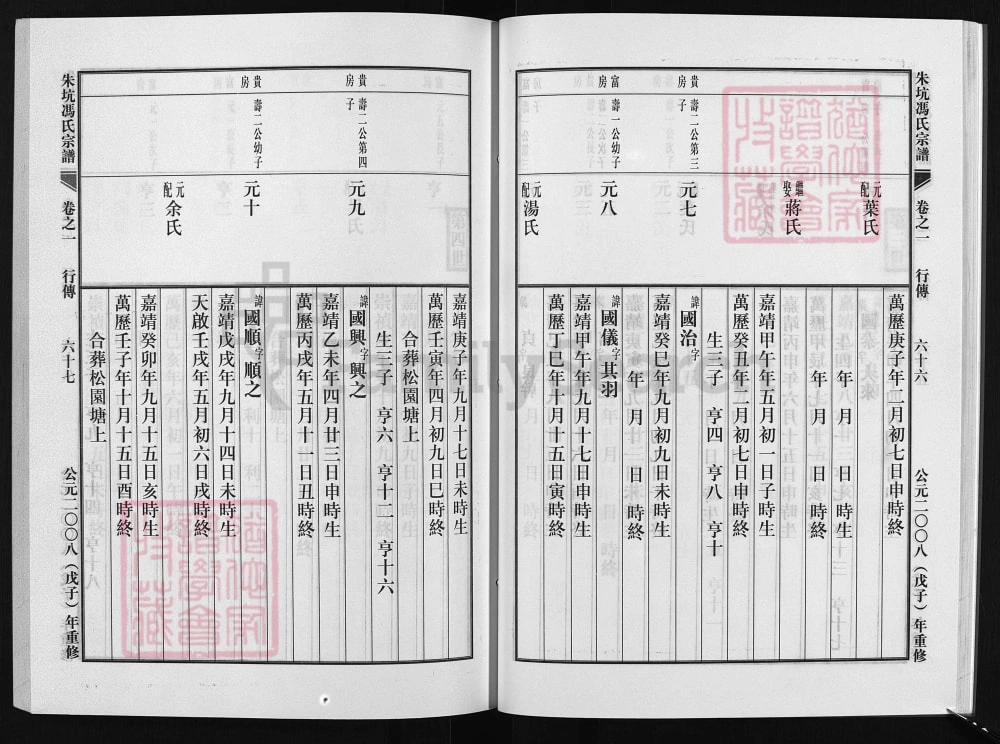 朱坑馮氏宗譜
卷之一
行傳
六十六
公元二〇〇八(戊子)年重修
萬歷庚子年二月初七日申時終
元配葉氏
年 月 日 時生
年 月 日 時終
繼娶蔣氏
嘉靖甲午年五月初一日子時生
萬歷癸丑年二月初七日申時終
生三子 亨四 亨八 亨十
貴房
壽二公第三子
元七
諱國治字
嘉靖癸巳年九月初九日未時生
年 月 日 時終
富房
壽一公幼子
元八
諱國儀字其羽
嘉靖甲午年九月十七日申時生
萬歷丁巳年十月十五日寅時終
元配湯氏
嘉靖庚子年九月十七日未時生
萬歷壬寅年四月初九日巳時終
合葬松園塘上
生三子 亨六 亨十二 亨十六
貴房
壽二公第四子
元九
諱國興字興之
嘉靖乙未年四月廿三日申時生
萬歷丙戌年五月十一日丑時終
貴房
壽二公幼子
元十
諱國順字順之
嘉靖戊戌年九月十四日未時生
天啟壬戌年五月初六日戌時終
元配余氏
嘉靖癸卯年九月十五日亥時生
萬歷壬子年十月十五日酉時終
合葬松園塘上
朱坑馮氏宗譜
卷之一
行傳
六十七
公元二〇〇八(戊子)年重修